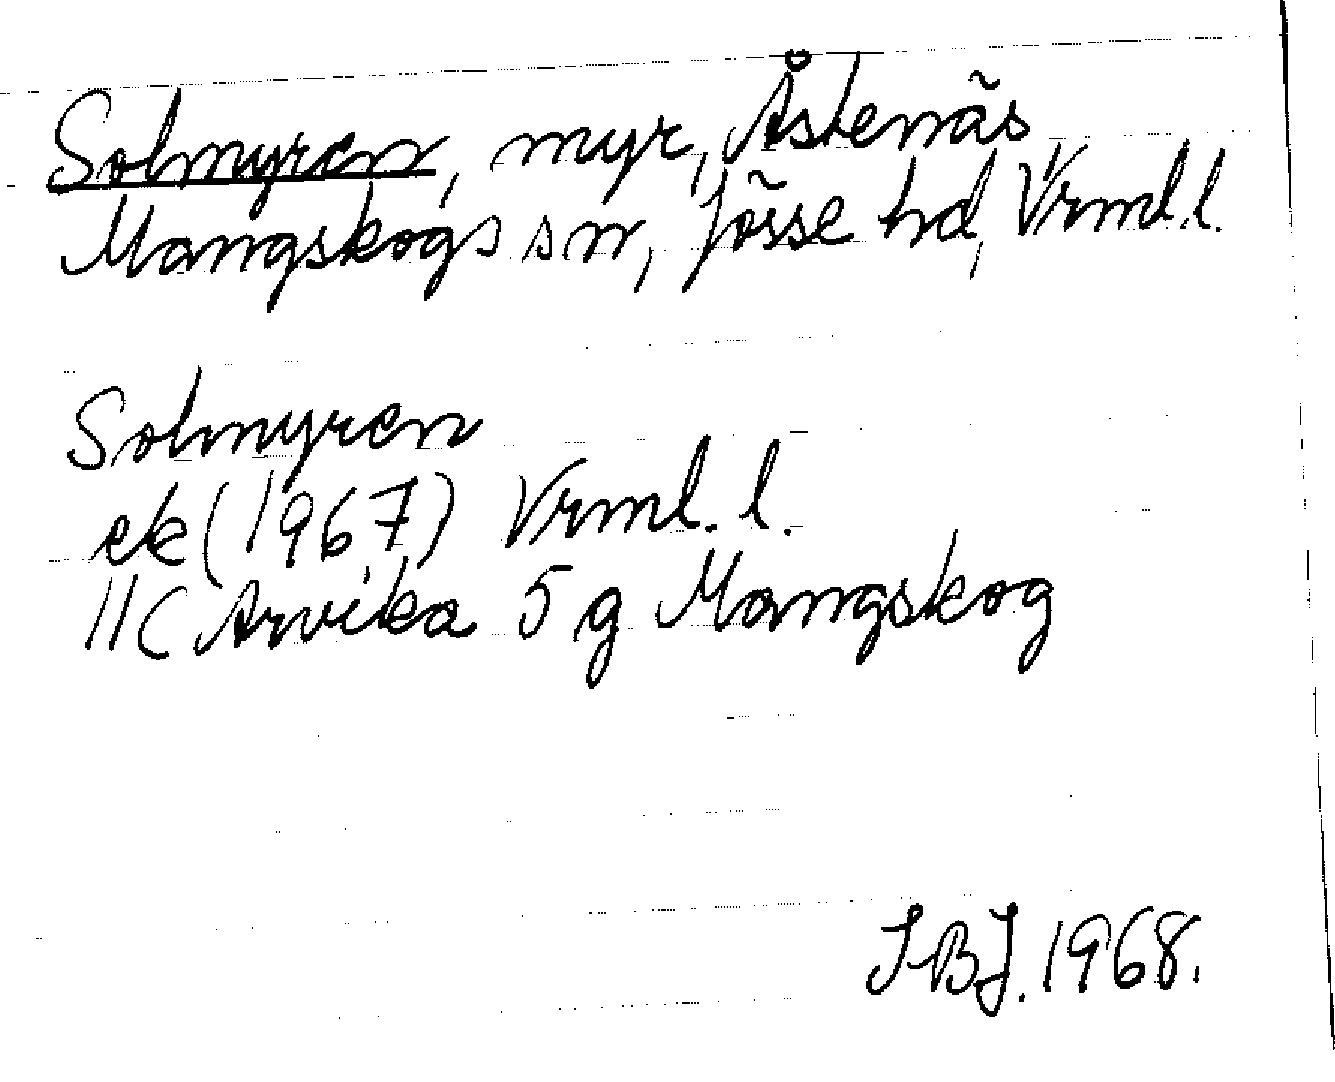 Solmyren, myr, Åstenäs
Mangskogs sn, Jösse hd, Vrml.l.
Solmyren
ek (1967) Vrml. l.
11C Arvika 5 g Mangskog
IBJ. 1968.